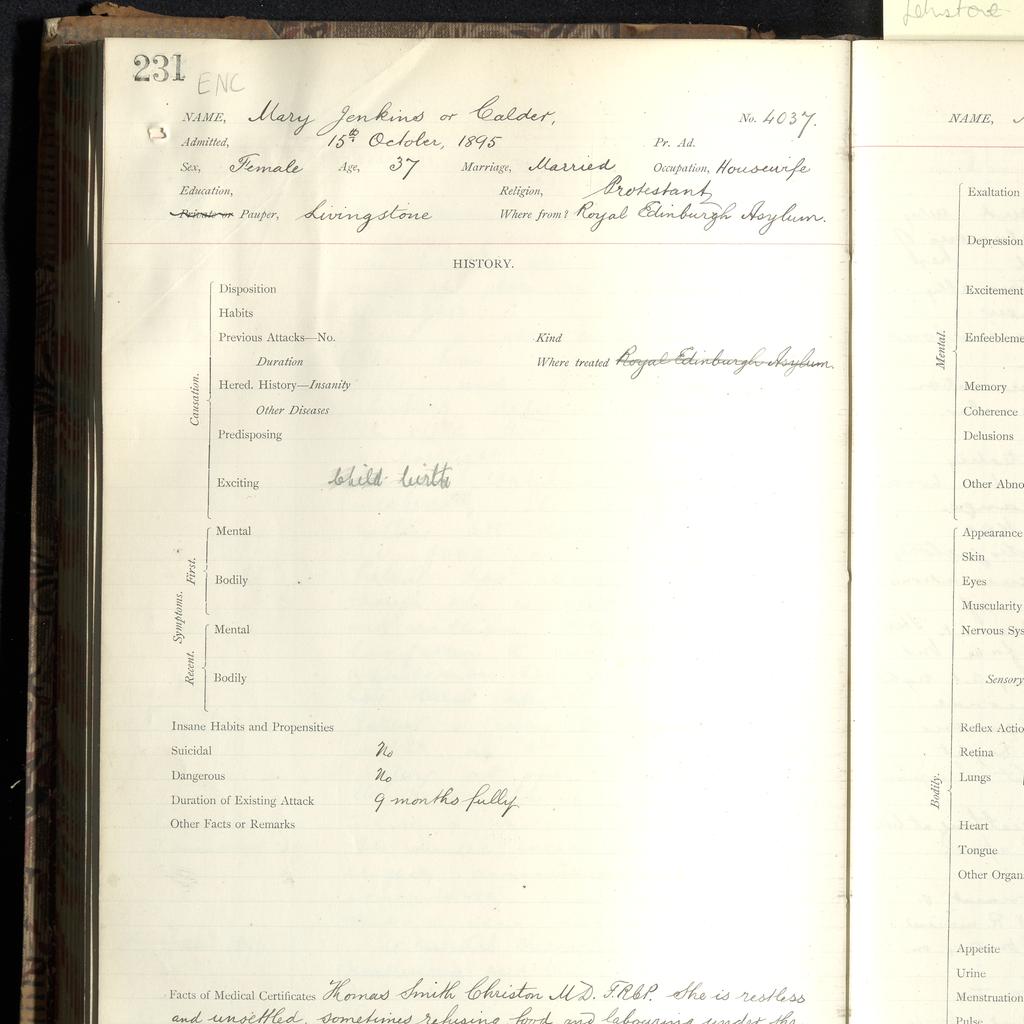 231
ENC
NAME, Mary Jenkins or Calder, No. 4037.
Admitted, 15th October, 1895 Pr. Ad.
Sex, Female Age, 37 Marriage, Married Occupation, Housewife
Education, Religion, Protestant
Private or Pauper, Livingstone Where from? Royal Edinburgh Asylum.
HISTORY.
Causation.
Disposition
Habits
Previous Attacks—No. Kind
Duration Where treated Royal Edinburgh Asylum.
Hered. History—Insanity
Other Diseases
Predisposing
Exciting Child birth
Symptoms.
First.
Mental
Bodily
Recent.
Mental
Bodily
Insane Habits and Propensities
Suicidal No
Dangerous No
Duration of Existing Attack 9 months fully
Other Facts or Remarks
Facts of Medical Certificates Thomas Smith M.D. She is restless
and unsettled, sometimes refusing food and labouring under the
NAME,
Mental.
Exaltation
Depression
Excitement
Enfeebleme
Memory
Coherence
Delusions
Other Abno
Bodily.
Appearance
Skin
Eyes
Muscularity
Nervous Sys
Sensory
Reflex Actio
Retina
Lungs
Heart
Tongue
Other Organ
Appetite
Urine
Menstruation
Pulse